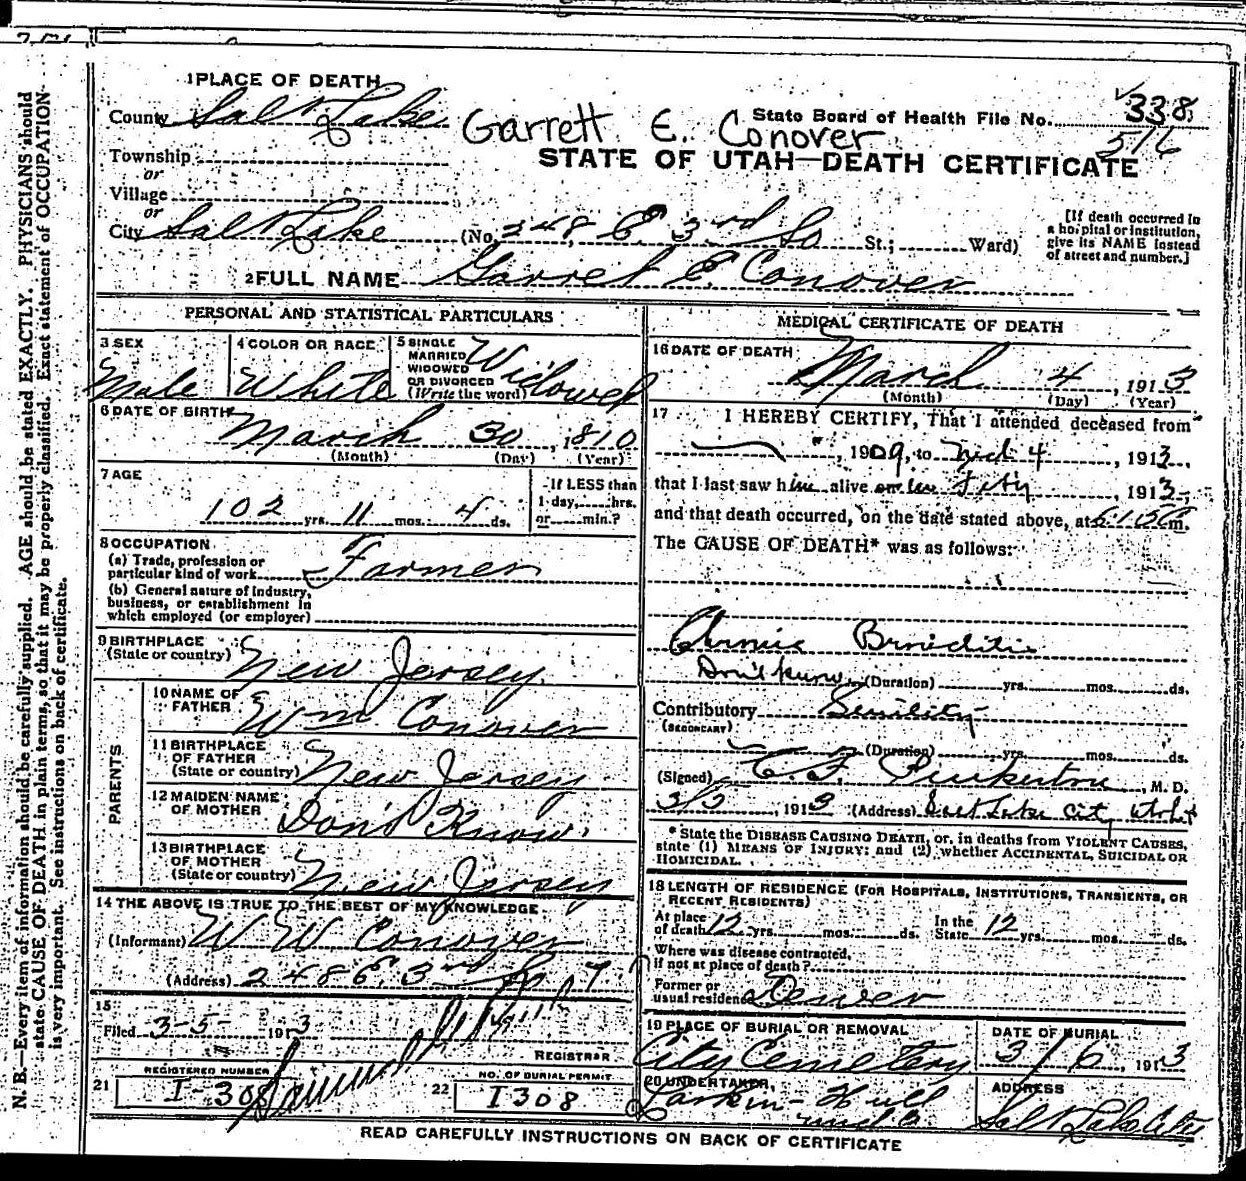 1 PLACE OF DEATH
County Salt Lake
Garrett E. Conover
State Board of Health File No. 338
516
STATE OF UTAH—DEATH CERTIFICATE
Township
or
Village
or
City Salt Lake (No. 248 E. 3rd So St.; Ward)
[If death occurred in a hospital or institution, give its NAME instead of street and number.]
2 FULL NAME Garret E. Conover
PERSONAL AND STATISTICAL PARTICULARS
3 SEX Male
4 COLOR OR RACE White
5 SINGLE MARRIED WIDOWED OR DIVORCED (Write the word) Widowed
6 DATE OF BIRTH
March 30, 1810
(Month) (Day) (Year)
7 AGE
102 yrs. 11 mos. 4 ds.
If LESS than 1 day, hrs. or min.?
8 OCCUPATION
(a) Trade, profession or particular kind of work Farmer
(b) General nature of industry, business, or establishment in which employed (or employer)
9 BIRTHPLACE
(State or country) New Jersey
PARENTS
10 NAME OF FATHER Wm Conover
11 BIRTHPLACE OF FATHER (State or country) New Jersey
12 MAIDEN NAME OF MOTHER Don't Know
13 BIRTHPLACE OF MOTHER (State or country) New Jersey
14 THE ABOVE IS TRUE TO THE BEST OF MY KNOWLEDGE
(Informant) W W Conover
(Address) 248 E. 3rd So
15
Filed 3-5- 1913
REGISTRAR
21 REGISTERED NUMBER I-308
22 NO. OF BURIAL PERMIT I 308
MEDICAL CERTIFICATE OF DEATH
16 DATE OF DEATH
March 4, 1913
(Month) (Day) (Year)
17 I HEREBY CERTIFY, That I attended deceased from
, 1909, to Mch 4, 1913,
that I last saw him alive on 1913,
and that death occurred, on the date stated above, at m.
The CAUSE OF DEATH* was as follows:
Chronic Bronchitis
Don't know (Duration) yrs. mos. ds.
Contributory Senility
(SECONDARY)
(Duration) yrs. mos. ds.
(Signed) Pinkerton, M. D.
1913 (Address) Salt Lake City Utah
* State the DISEASE CAUSING DEATH, or, in deaths from VIOLENT CAUSES, state (1) MEANS OF INJURY; and (2) whether ACCIDENTAL, SUICIDAL OR HOMICIDAL.
18 LENGTH OF RESIDENCE (FOR HOSPITALS, INSTITUTIONS, TRANSIENTS, OR RECENT RESIDENTS)
At place of death 12 yrs. mos. ds. In the State 12 yrs. mos. ds.
Where was disease contracted, if not at place of death?
Former or usual residence Denver
19 PLACE OF BURIAL OR REMOVAL City Cemetery
DATE OF BURIAL 3/6, 1913
20 UNDERTAKER, Larkin-Hull
ADDRESS Salt Lake City
READ CAREFULLY INSTRUCTIONS ON BACK OF CERTIFICATE
N. B.—Every item of information should be carefully supplied. AGE should be stated EXACTLY. PHYSICIANS should
state CAUSE OF DEATH in plain terms, so that it may be properly classified. Exact statement of OCCUPATION
is very important. See instructions on back of certificate.